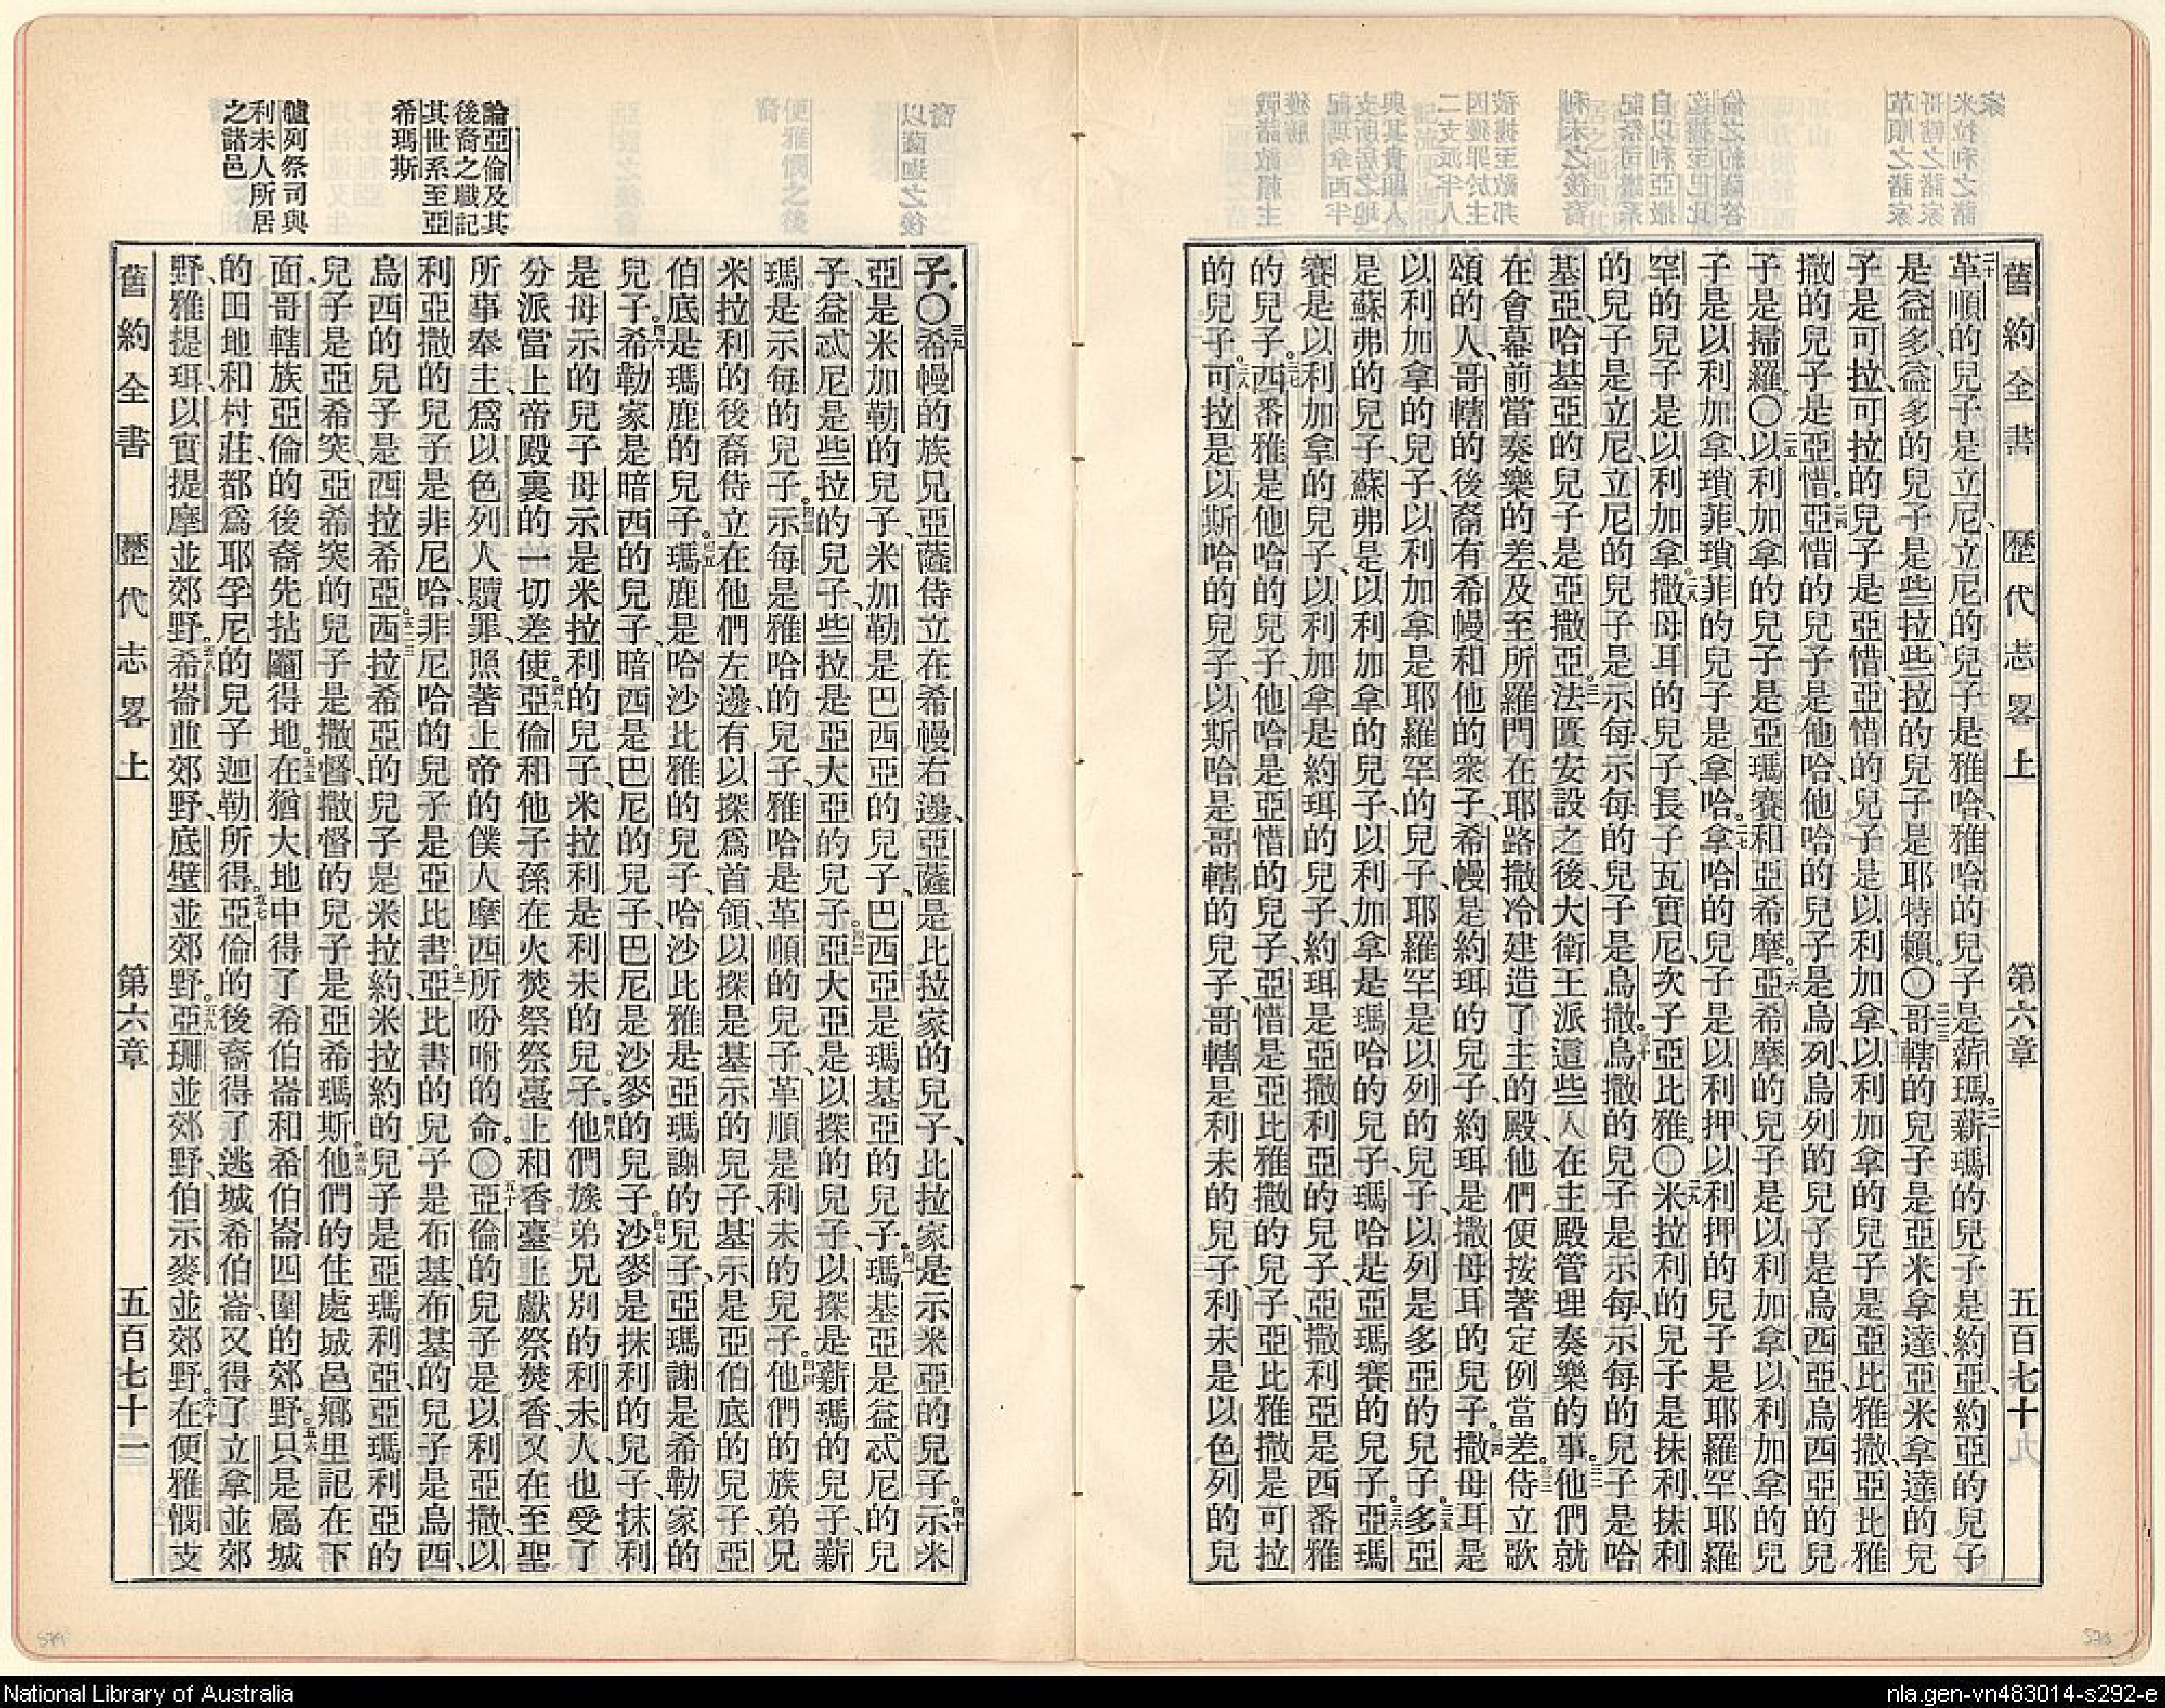 舊約全書 歷代志畧上 第六章 五百七十
二十革順的兒子是立尼、立尼的兒子是雅哈、雅哈的兒子是薪瑪。二一薪瑪的兒子是約亞、約亞的兒子
是益多、益多的兒子是些拉、些拉的兒子是耶特賴。〇二二哥轄的兒子是亞米拿達、亞米拿達的兒
子是可拉、可拉的兒子是亞惜、亞惜的兒子是以利加拿、以利加拿的兒子是亞比雅撒、亞比雅
撒的兒子是亞惜。二四亞惜的兒子是他哈、他哈的兒子是烏列、烏列的兒子是烏西亞、烏西亞的兒
子是掃羅。〇二五以利加拿的兒子是亞瑪賽和亞希摩。二六亞希摩的兒子是以利加拿、以利加拿的兒
子是以利加拿瑣菲、瑣菲的兒子是拿哈。二七拿哈的兒子是以利押、以利押的兒子是耶羅罕、耶羅
罕的兒子是以利加拿。二八撒母耳的兒子、長子瓦實尼、次子亞比雅。〇二九米拉利的兒子是抹利、抹利
的兒子是立尼、立尼的兒子是示每、示每的兒子是烏撒。三十烏撒的兒子是示每、示每的兒子是哈
基亞、哈基亞的兒子是亞撒亞。三一法匱安設之後、大衛王派這些人在主殿管理奏樂的事。三二他們就
在會幕前當奏樂的差、及至所羅門在耶路撒冷建造了主的殿、他們便按著定例當差。三三侍立歌
頌的人、哥轄的後裔有希幔和他的衆子、希幔是約珥的兒子、約珥是撒母耳的兒子。三四撒母耳是
以利加拿的兒子、以利加拿是耶羅罕的兒子、耶羅罕是以列的兒子、以列是多亞的兒子。三五多亞
是蘇弗的兒子、蘇弗是以利加拿的兒子、以利加拿是瑪哈的兒子、瑪哈是亞瑪賽的兒子。三六亞瑪
賽是以利加拿的兒子、以利加拿是約珥的兒子、約珥是亞撒利亞的兒子、亞撒利亞是西番雅
的兒子。三七西番雅是他哈的兒子、他哈是亞惜的兒子、亞惜是亞比雅撒的兒子、亞比雅撒是可拉
的兒子。三八可拉是以斯哈的兒子、以斯哈是哥轄的兒子、哥轄是利未的兒子、利未是以色列的兒
子。〇三九希幔的族兄亞薩侍立在希幔右邊、亞薩是比拉家的兒子、比拉家是示米亞的兒子。四十示米
亞是米加勒的兒子、米加勒是巴西亞的兒子、巴西亞是瑪基亞的兒子。四一瑪基亞是益忒尼的兒
子、益忒尼是些拉的兒子、些拉是亞大亞的兒子。四二亞大亞是以探的兒子、以探是薪瑪的兒子、薪
瑪是示每的兒子。四三示每是雅哈的兒子、雅哈是革順的兒子、革順是利未的兒子。四四他們的族弟兄
米拉利的後裔侍立在他們左邊、有以探爲首領、以探是基示的兒子、基示是亞伯底的兒子、亞
伯底是瑪鹿的兒子。四五瑪鹿是哈沙比雅的兒子、哈沙比雅是亞瑪謝的兒子、亞瑪謝是希勒家的
兒子。四六希勒家是暗西的兒子、暗西是巴尼的兒子、巴尼是沙麥的兒子。四七沙麥是抹利的兒子、抹利
是母示的兒子、母示是米拉利的兒子、米拉利是利未的兒子。四八他們族弟兄別的利未人也受了
分派當上帝殿裏的一切差使。四九亞倫和他子孫在火焚祭祭臺上和香臺上獻祭焚香、又在至聖
所事奉主、爲以色列人贖罪、照著上帝的僕人摩西所吩咐的命。〇五十亞倫的兒子是以利亞撒、以
利亞撒的兒子是非尼哈、非尼哈的兒子是亞比書。五一亞比書的兒子是布基、布基的兒子是烏西、
烏西的兒子是西拉希亞。五二西拉希亞的兒子是米拉約、米拉約的兒子是亞瑪利亞、亞瑪利亞的
兒子是亞希突、亞希突的兒子是撒督、撒督的兒子是亞希瑪斯。五四他們的住處城邑鄉里記在下
面、哥轄族亞倫的後裔先拈鬮得地。五五在猶大地中得了希伯崙和希伯崙四圍的郊野。五六只是屬城
的田地和村莊、都爲耶孚尼的兒子迦勒所得。五七亞倫的後裔得了逃城希伯崙、又得了立拿並郊
野、雅提珥、以實提摩並郊野。五八希崙並郊野、底壁並郊野。五九亞珊並郊野、伯示麥並郊野。六十在便雅憫支
舊約全書 歷代志畧上 第六章 五百七十一
論亞倫及其
後裔之職記
其世系至亞
希瑪斯
臚列祭司與
利未人所居
之諸邑
National Library of Australia
nla.gen-vn483014-s292-e